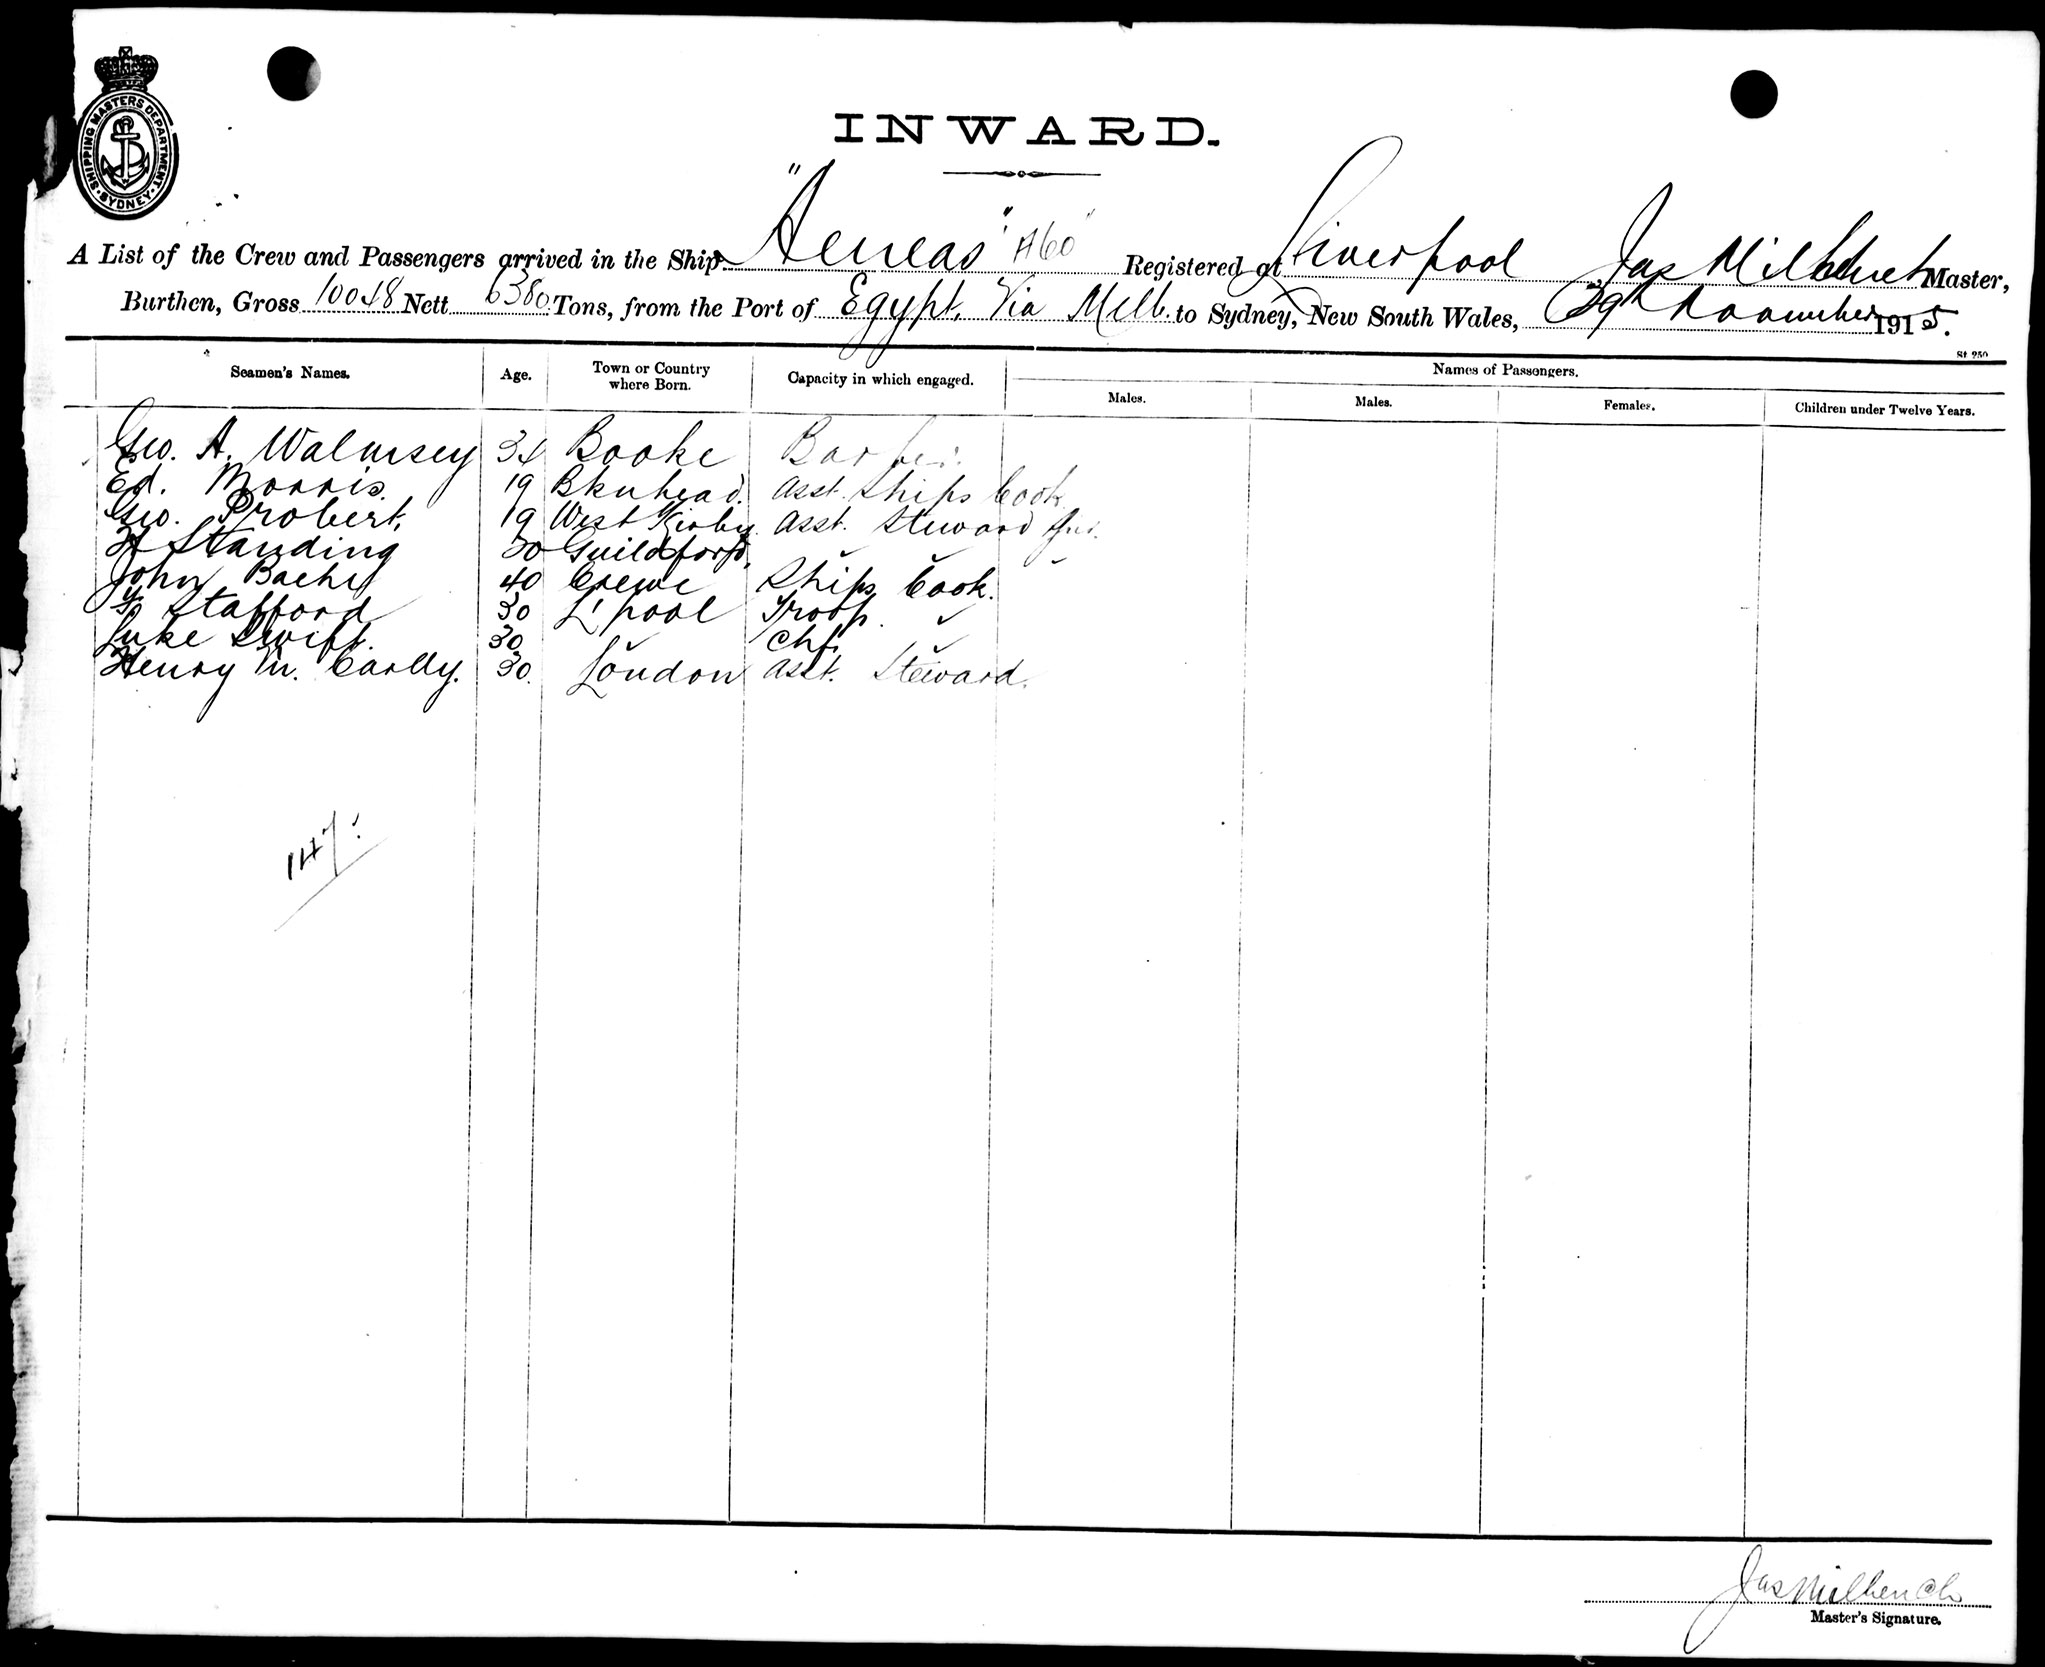 SHIPPING MASTERS DEPARTMENT. SYDNEY
INWARD.
A List of the Crew and Passengers arrived in the Ship "Aeneas" "A60" Registered at Liverpool Jas Milbench Master,
Burthen, Gross 10048 Nett 6380 Tons, from the Port of Egypt. Via Melb. to Sydney, New South Wales, 29th November 1915.
St 250
Seamen's Names. Age. Town or Country where Born. Capacity in which engaged. Names of Passengers.
Males. Males. Females. Children under Twelve Years.
Geo. A. Walmsey 34 Booke Barber.
Ed. Morris. 19 Bknhead. Asst. Ships Cook.
Geo. Probert. 19 West Kirby Asst. Steward
Standing 30 Guildford, " " "
John 40 Crewe Ships Cook.
Stafford 30 L'pool Troop. "
Luke Swift. 30 " Chf. "
Henry M. 30. London Asst. Steward.
147.
Jas Milbench
Master's Signature.